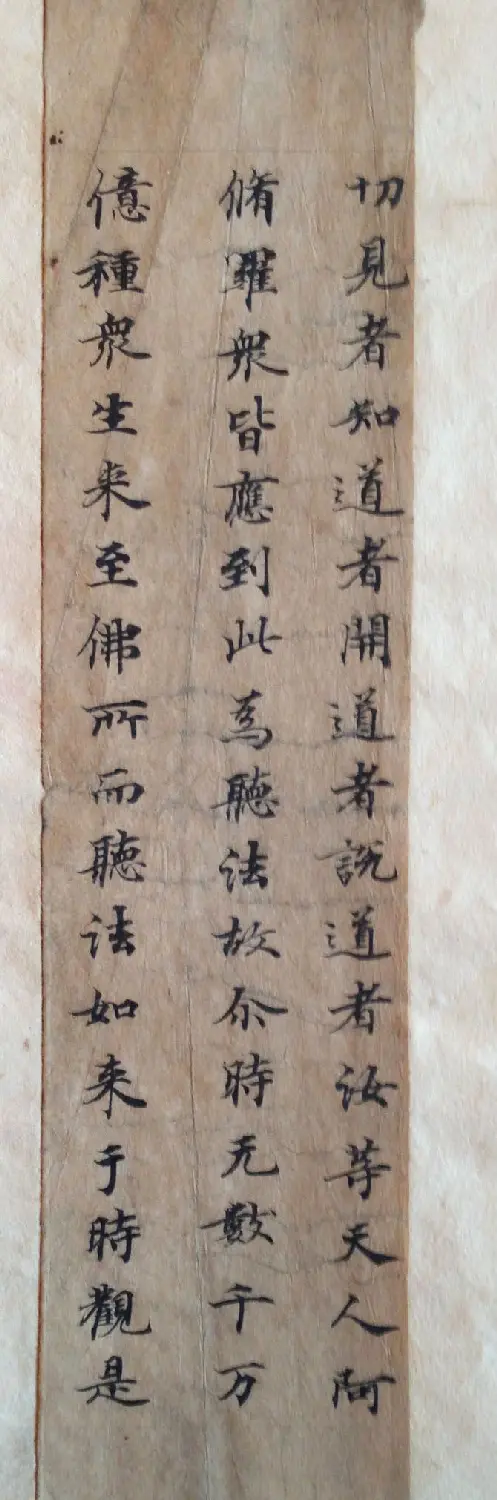 切見者知道者開道者說道者汝等天人阿
脩羅衆皆應到此爲聽法故尒時无數千万
億種衆生来至佛所而聽法如来于時觀是